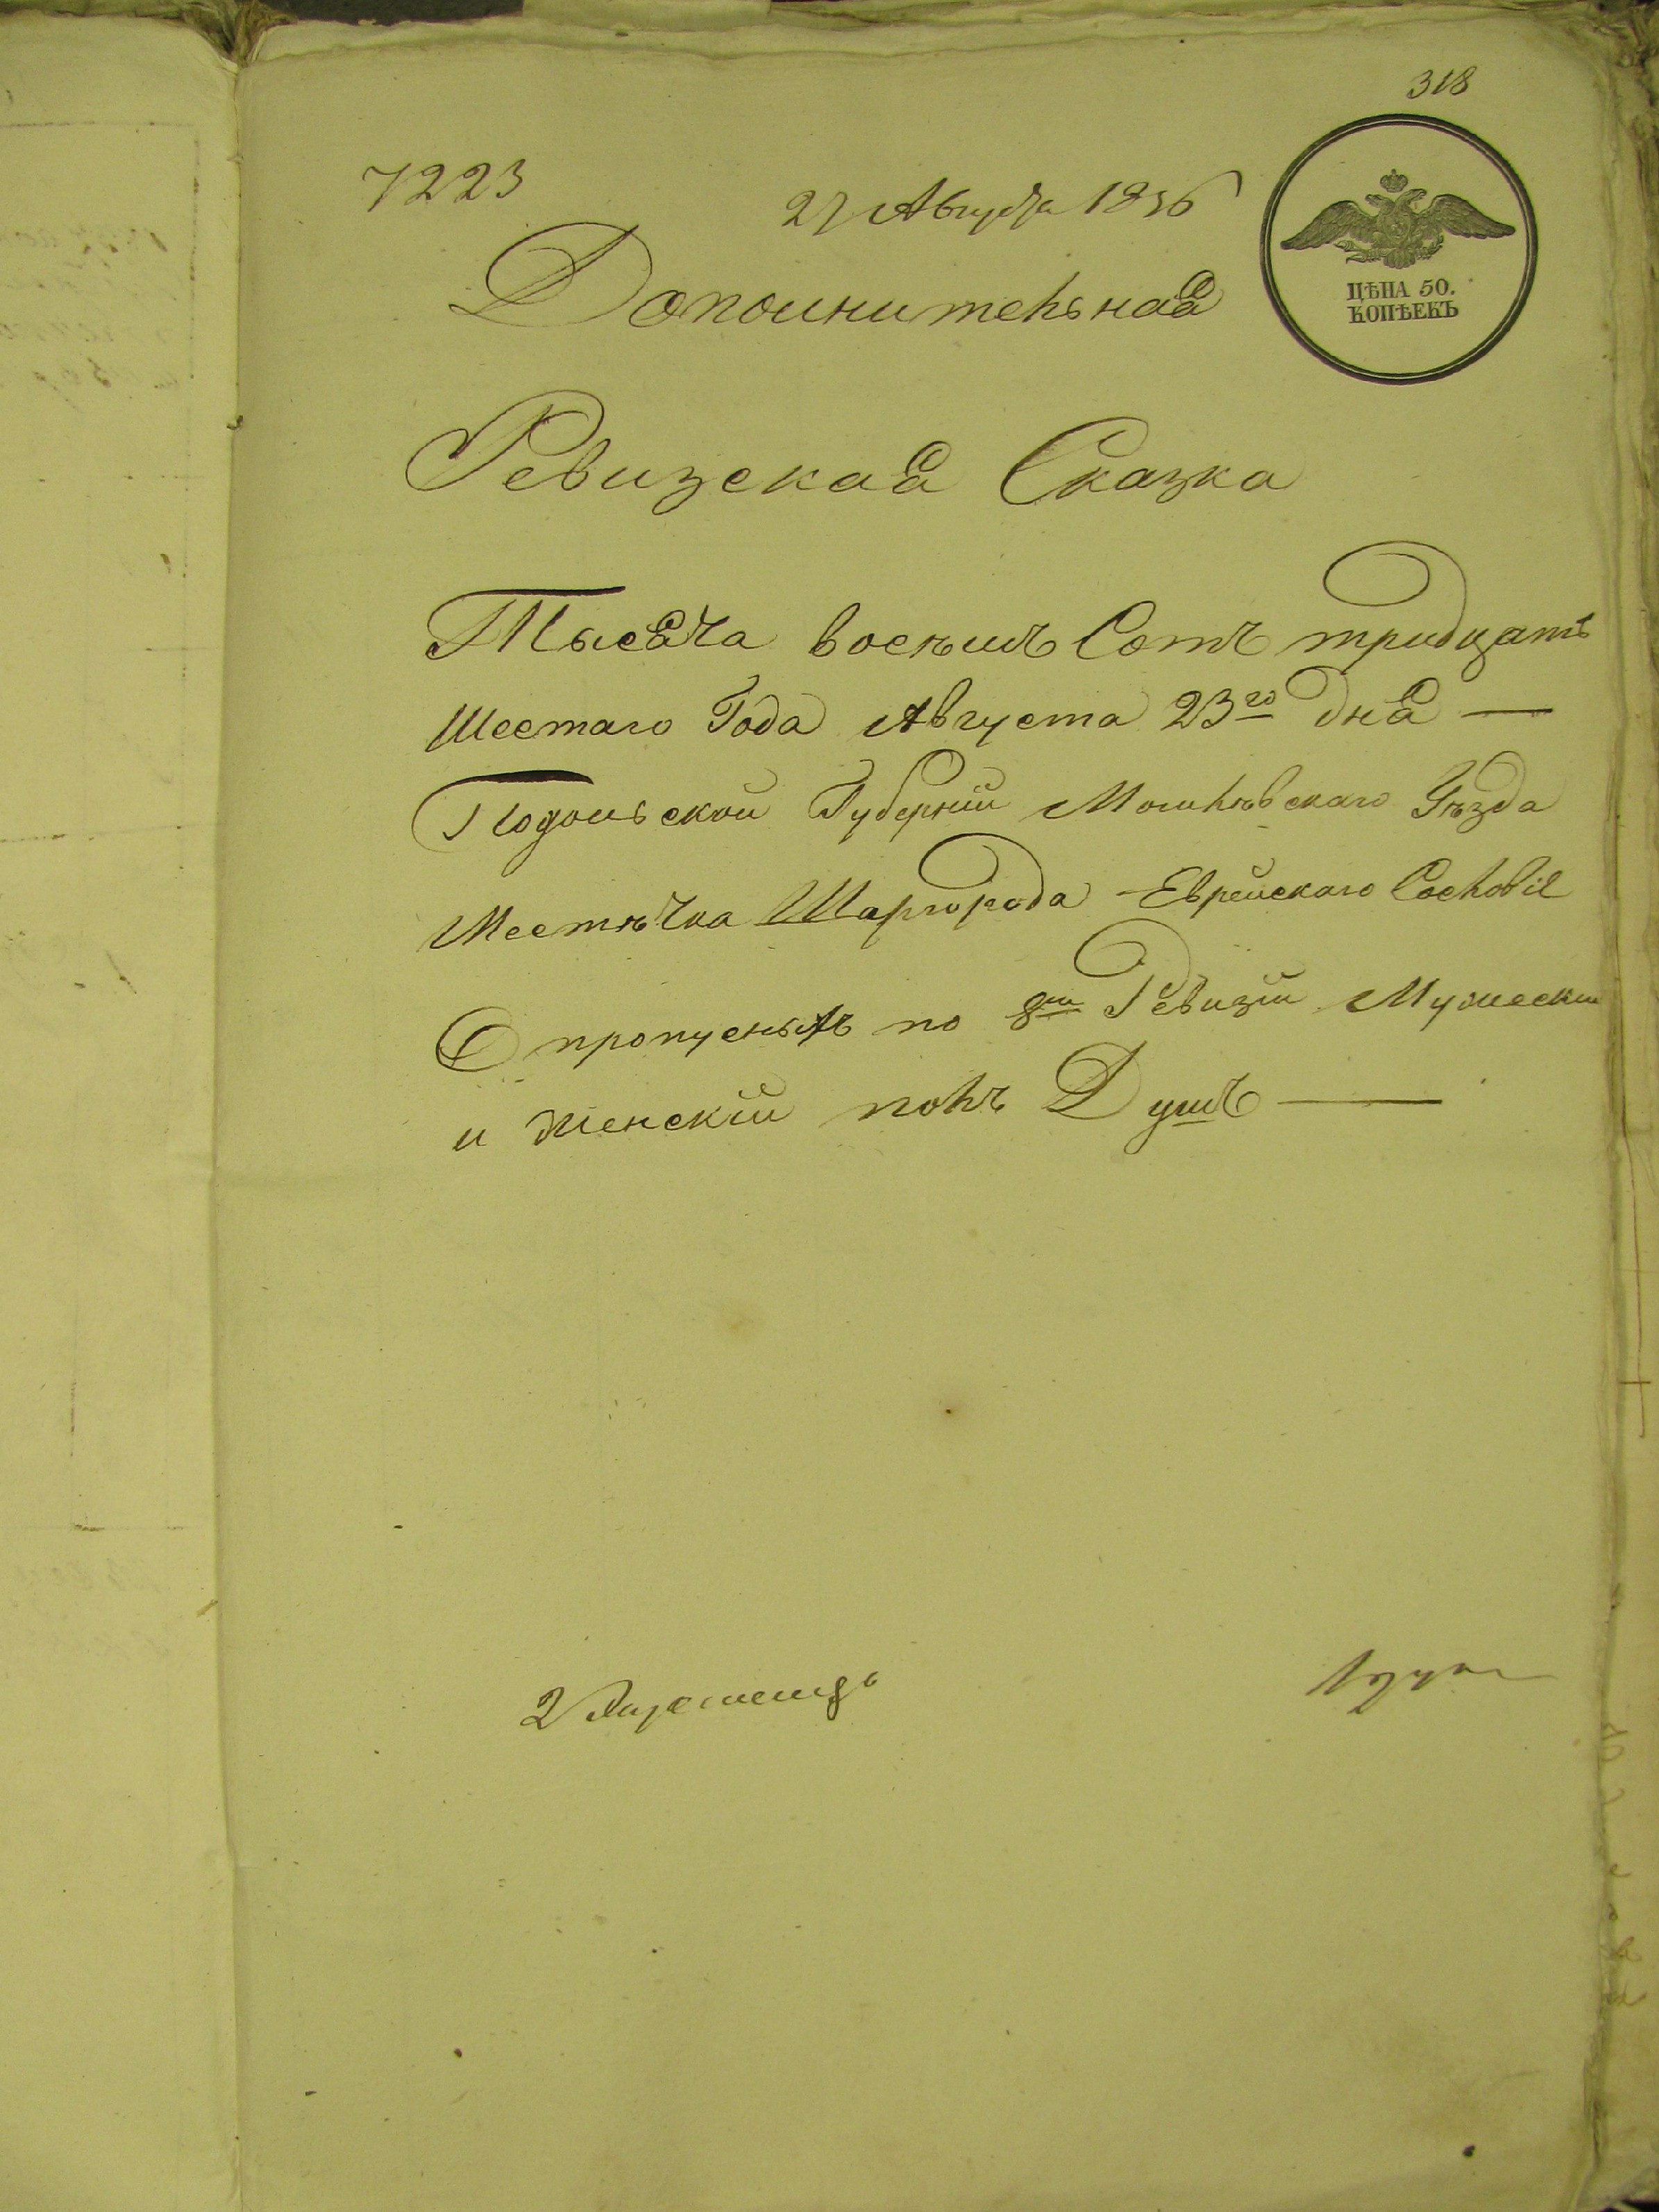 318
7223
27 Августа 1836
ЦѢНА 50.
КОПѢЕКЪ
Дополнительная
Ревизская Сказка
Тысяча восѣмъ Сотъ тридцатъ
Шестаго Года Августа 23го дня —
Подольской Губерніи Могилѣвскаго Уѣзда
Местѣчка Шаргорода Еврейскаго Сословія
О пропусныхъ по 8ми Ревизіи Мужескій
и Женскій полъ Душъ —
2